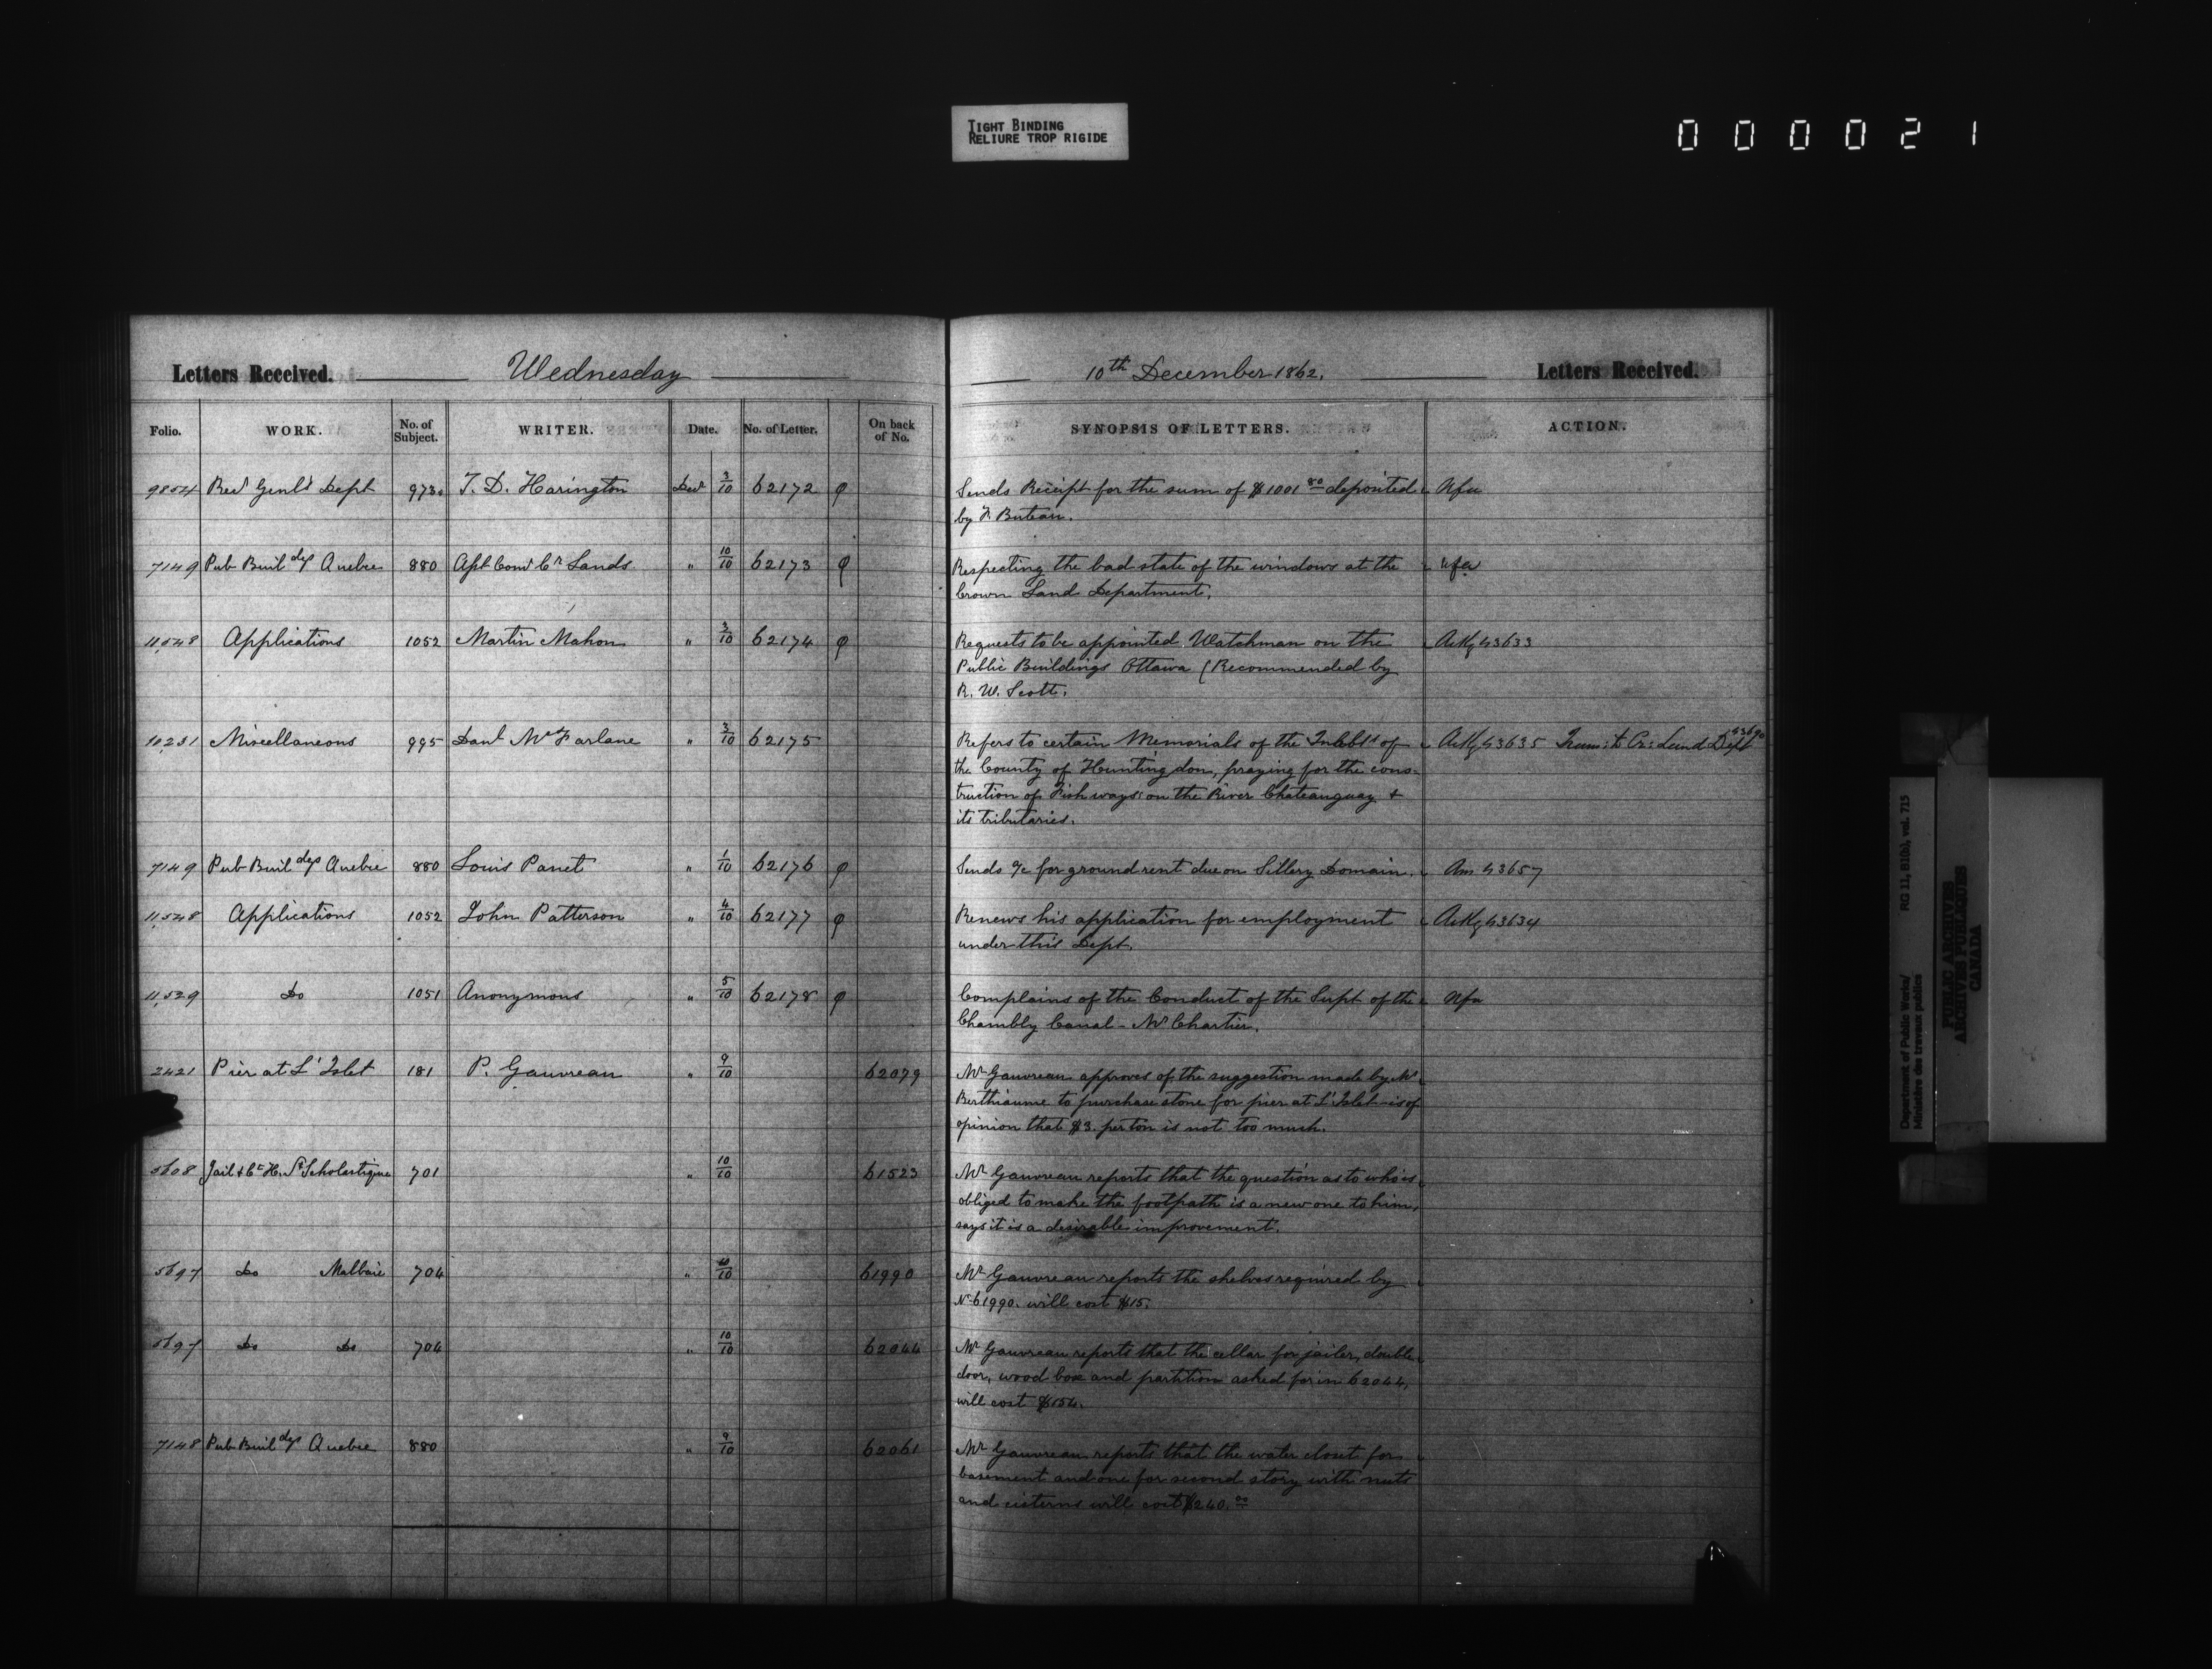 TIGHT BINDING
RELIURE TROP RIGIDE
000021
Letters Received. Wednesday 10th December 1862. Letters Received.
Folio. WORK. No. of Subject. WRITER. Date. No. of Letter. On back of No. SYNOPSIS OF LETTERS. ACTION.
9854 Recr Genl's Dept 973 T. D. Harington Decr 3/10 62172 φ Sends Receipt for the sum of $1001 80 deposited Nfa
by F. Buteau.
7149 Pub Buildgs Quebec 880 Asst Comr Cr Lands " 10/10 62173 φ Respecting the bad state of the windows at the Nfa
Crown Land Department.
11,548 Applications 1052 Martin Mahon " 3/10 62174 φ Requests to be appointed Watchman on the Ackg 43633
Public Buildings Ottawa (Recommended by
R. W. Scott.
10,231 Miscellaneous 995 Danl McFarlane " 3/10 62175 Refers to certain Memorials of the Inhbts of Ackg 43635 Trans: to Cr: Land Dept
the County of Huntingdon, praying for the cons-
truction of Fishways on the River Chateauguay &
its tributaries.
7149 Pub Buildgs Quebec 880 Louis Panet " 1/10 62176 φ Sends a/c for ground rent due on Sillery Domain. Ans 43657
11,548 Applications 1052 John Patterson " 4/10 62177 φ Renews his application for employment Ackg 43634
under this Dept.
11,529 Do 1051 Anonymous " 5/10 62178 φ Complains of the Conduct of the Supt of the Nfa
Chambly Canal - Mr Chartier.
2421 Pier at L'Islet 181 P. Gauvreau " 9/10 62079 Mr Gauvreau approves of the suggestion made by Mr
Berthiaume to purchase stone for pier at L'Islet - is of
opinion that $3. per ton is not too much.
5608 Jail & Ct H. St Scholastique 701 " 10/10 61523 Mr Gauvreau reports that the question as to who is
obliged to make the footpath is a new one to him,
says it is a desirable improvement.
5697 Do Malbaie 704 " 10/10 61990 Mr Gauvreau reports the shelves required by
No 61990. will cost $15.
5697 Do Do 704 " 10/10 62044 Mr Gauvreau reports that the cellar for jailer, double
door, wood box and partition asked for in 62044,
will cost $154.
7148 Pub Buildgs Quebec 880 " 9/10 62061 Mr Gauvreau reports that the water closet for
basement and one for second story with
and cisterns will cost $240.00
Department of Public Works/ RG 11, B1(b), vol. 715
Ministère des travaux publics
PUBLIC ARCHIVES
ARCHIVES PUBLIQUES
CANADA